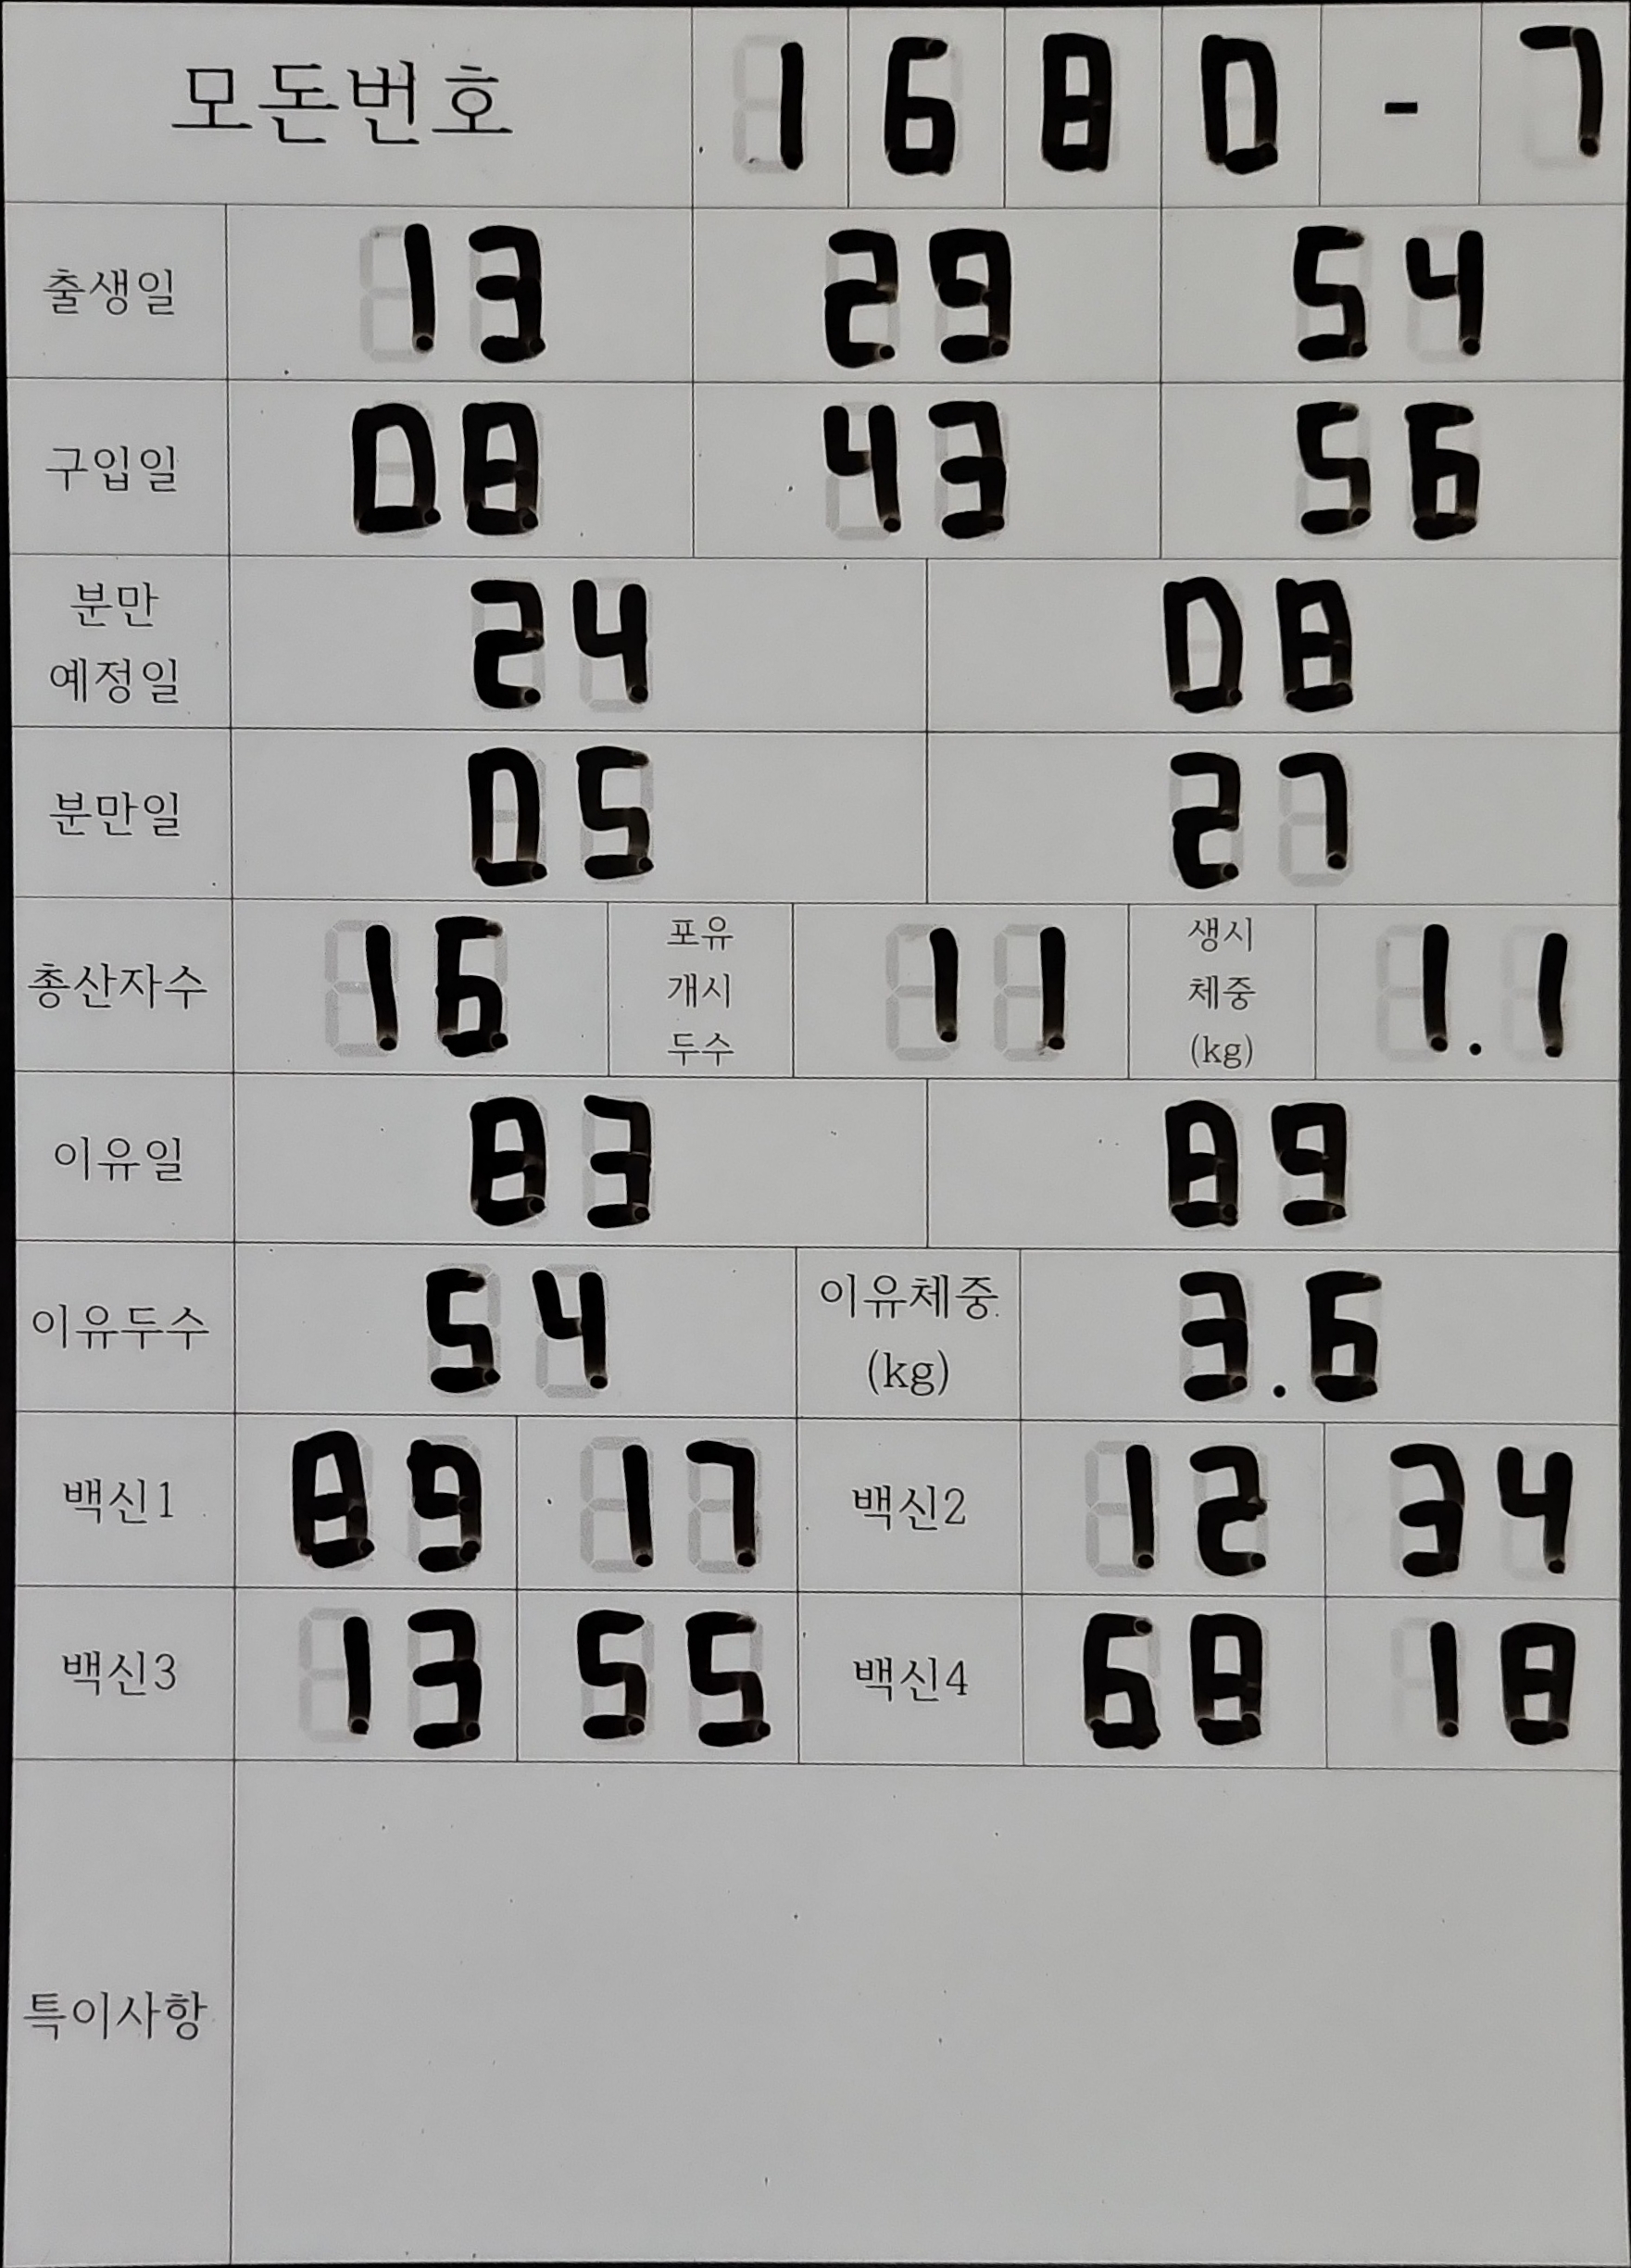 모돈번호 1 6 8 0 - 7
출생일 13 29 54
구입일 08 43 56
분만
예정일 24 08
분만일 05 27
총산자수 16 포유
개시
두수 11 생시
체중
(kg) 1.1
이유일 83 89
이유두수 54 이유체중
(kg) 3.6
백신1 89 17 백신2 12 34
백신3 13 55 백신4 68 18
특이사항